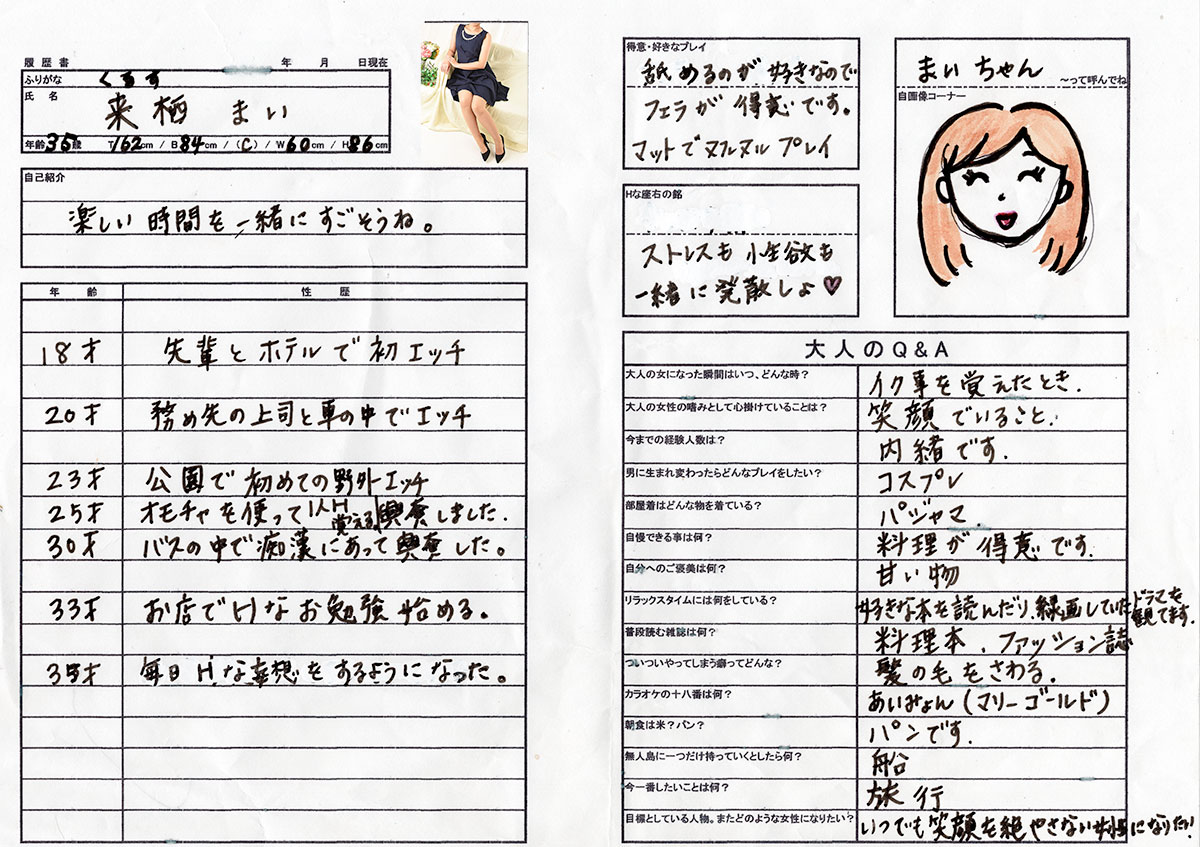 履歴書 年 月 日現在
ふりがな くるす
氏名 来栖 まい
年齢35歳 T162cm / B84cm / (C) / W60cm / H86cm
自己紹介
楽しい時間を一緒にすごそうね。
年齢 性歴
18才 先輩とホテルで初エッチ
20才 務め先の上司と車の中でエッチ
23才 公園で初めての野外エッチ
25才 オモチャを使って1人H覚える。興奮しました.
30才 バスの中で痴漢にあって興奮した。
33才 お店でHなお勉強始める。
35才 毎日Hな妄想をするようになった。
得意・好きなプレイ
舐めるのが好きなので
フェラが得意です。
マットでヌルヌルプレイ
Hな座右の銘
ストレスも小生欲も
一緒に発散しよ♥
まいちゃん ～って呼んでね
自画像コーナー
大人のQ&A
大人の女になった瞬間はいつ、どんな時？ イク事を覚えたとき.
大人の女性の嗜みとして心掛けていることは？ 笑顔でいること.
今までの経験人数は？ 内緒です.
男に生まれ変わったらどんなプレイをしたい？ コスプレ
部屋着はどんな物を着ている？ パジャマ.
自慢できる事は何？ 料理が得意です.
自分へのご褒美は何？ 甘い物
リラックスタイムには何をしている？ 好きな本を読んだり、録画していたドラマを観てます.
普段読む雑誌は何？ 料理本、ファッション誌
ついついやってしまう癖ってどんな？ 髪の毛をさわる.
カラオケの十八番は何？ あいみょん(マリーゴールド)
朝食は米？パン？ パンです.
無人島に一つだけ持っていくとしたら何？ 船
今一番したいことは何？ 旅行
目標としている人物。またどのような女性になりたい？ いつでも笑顔を絶やさない女性になりたい